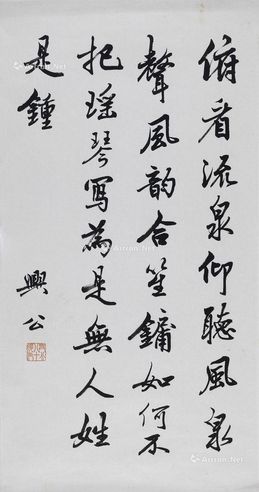 俯看流泉仰聽風泉
聲風韵合笙鏞如何不
把瑶琴寫為是無人姓
是鍾
興公